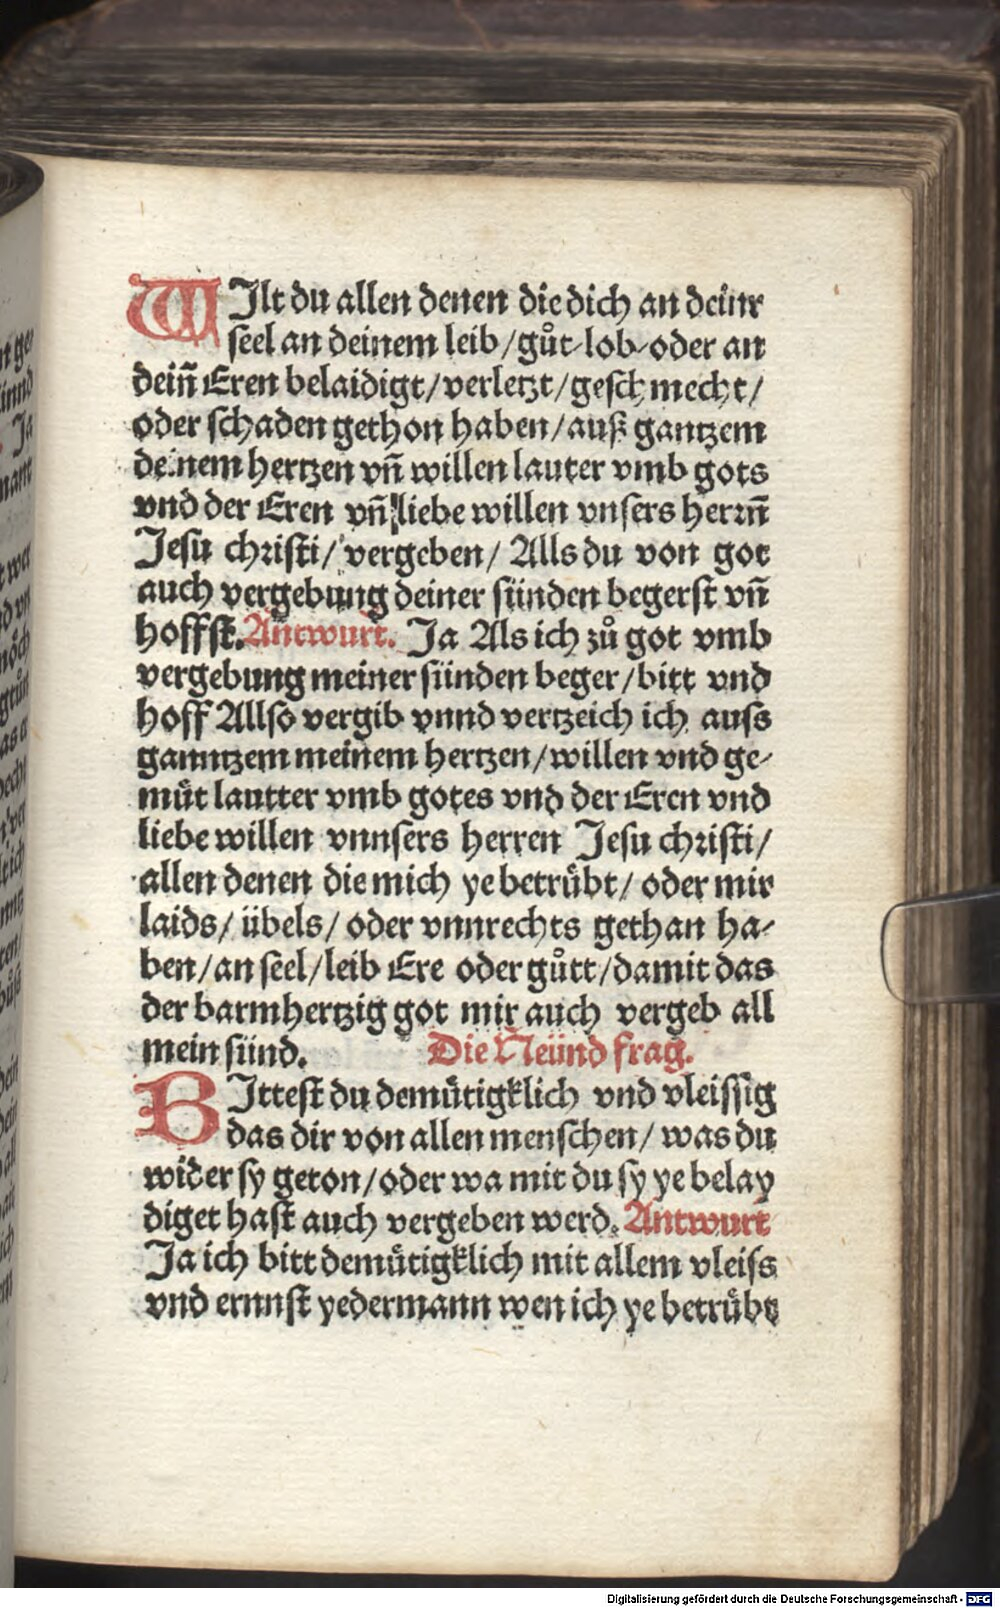 WIlt du allen denen die dich an deinr
seel an deinem leib/gůt-lob-oder an
dein̄ Eren belaidigt/verletzt/geschmecht/
oder schaden gethon haben/auß gantzem
deinem hertzen vn̄ willen lauter vmb gots
vnd der Eren vn̄ liebe willen vnsers herrn̄
Jesu christi/vergeben/ Alls du von got
auch vergebung deiner sünden begerst vn̄
hoffst. Antwurt. Ja Als ich zů got vmb
vergebung meiner sünden beger/bitt vnd
hoff Allso vergib vnnd vertzeich ich auss
ganntzem meinem hertzen/willen vnd ge-
müt lautter vmb gotes vnd der Eren vnd
liebe willen vnnsers herren Jesu christi/
allen denen die mich ye betrübt/ oder mir
laids/ übels/ oder vnnrechts gethan ha-
ben/an seel/leib Ere oder gůtt/damit das
der barmhertzig got mir auch vergeb all
mein sünd. Die Neünd frag.
BIttest du demütigklich vnd vleissig
das dir von allen menschen/ was du
wider sy geton/oder wa mit du sy ye belay
diget hast auch vergeben werd. Antwurt
Ja ich bitt demütigklich mit allem vleiss
vnd ernnst yedermann wen ich ye betrübt
Digitalisierung gefördert durch die Deutsche Forschungsgemeinschaft - DFG